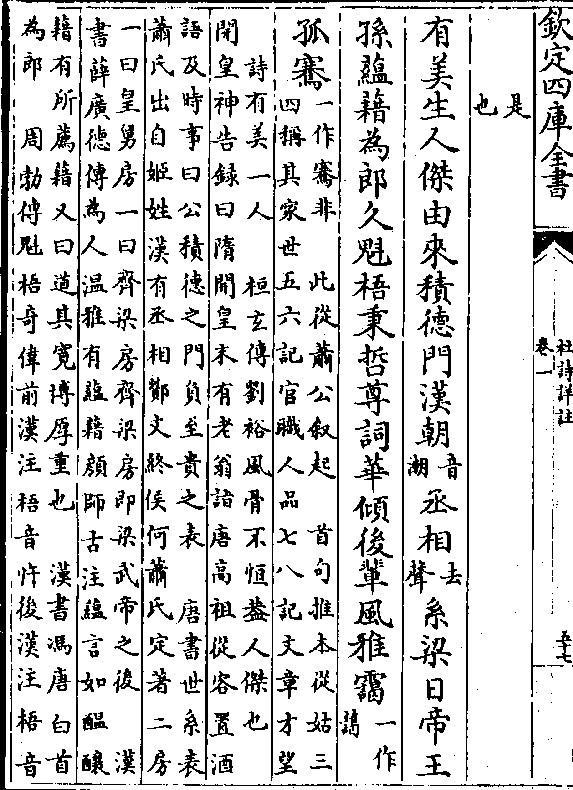 欽定四庫全書
杜詩詳註
卷一
五十七
是
也
有美生人傑由來積德門漢朝音潮丞相去聲系梁日帝王
孫蘊藉為郎久魁梧秉哲尊詞華傾後輩風雅靄一作藹
孤鶱一作騫非 此從蕭公叙起 首句推本從姑三
四稱其家世五六記官職人品七八記文章才望
詩有美一人 桓玄傳劉裕風骨不恒蓋人傑也
開皇神告録曰隋開皇末有老翁詣唐高祖從容置酒
語及時事曰公積德之門負至貴之表 唐書世系表
蕭氏出自姬姓漢有丞相酇文終侯何蕭氏定著二房
一曰皇舅房一曰齊梁房齊梁房即梁武帝之後 漢
書薛廣德傳為人温雅有藴藉顔師古注藴言如醖釀
籍有所薦籍又曰道其寛博厚重也 漢書馮唐白首
為郎 周勃傳魁梧奇偉前漢注梧音忤後漢注梧音